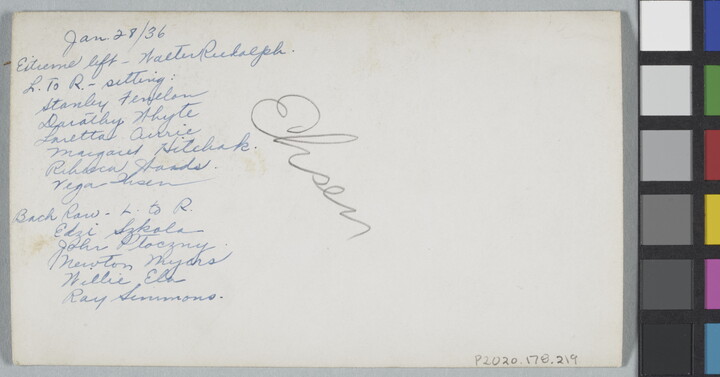 Jan. 28/36
Extreme left - Walter Rudolph.
L. To R. - sitting:
Stanley Fenelon
Dorothy Whyte
Loretta
Margaret Hitchak.
Rebecca
Vega
Back Row - L. to R.
Edzi Szkola
John Ploczny.
Newton Myers
Willie Ela
Ray Simmons.
P2020.178.219